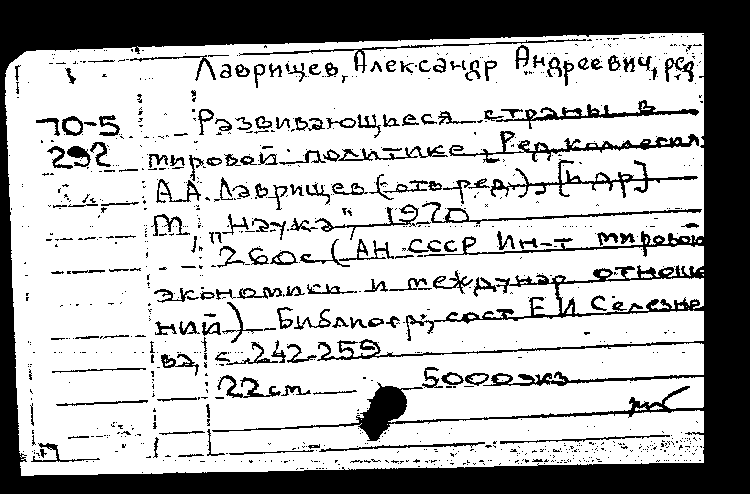 Лаврищев, Александр Андреевич, ред
70-5 Развивающиеся страны в
292 мировой политике. Ред.коллегия:
А.А.Лаврищев (отв ред.), [и др].
М., "Наука", 1970.
260с. (АН СССР Ин-т мировой
экономики и междунар отноше
ний) Библиогр:, сост. Е.И Селезне
ва, с. 242-259.
22 см. 5000экз